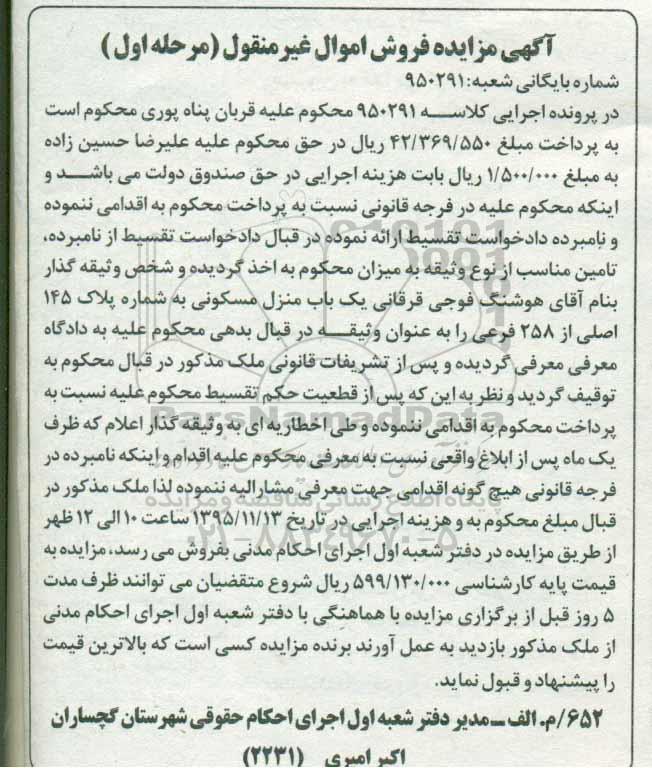 آگهی مزایده فروش اموال غیرمنقول (مرحله اول)
شماره بایگانی شعبه: ۹۵۰۲۹۱
در پرونده اجرایی کلاسه ۹۵۰۲۹۱ محکوم علیه قربان پناه پوری محکوم است
به پرداخت مبلغ ۴۲/۳۶۹/۵۵۰ ریال در حق محکوم علیه علیرضا حسین زاده
به مبلغ ۱/۵۰۰/۰۰۰ ریال بابت هزینه اجرایی در حق صندوق دولت می باشد و
اینکه محکوم علیه در فرجه قانونی نسبت به پرداخت محکوم به اقدامی ننموده
و نامبرده دادخواست تقسیط ارائه نموده در قبال دادخواست تقسیط از نامبرده،
تامین مناسب از نوع وثیقه به میزان محکوم به اخذ گردیده و شخص وثیقه گذار
بنام آقای هوشنگ فوجی قرقانی یک باب منزل مسکونی به شماره پلاک ۱۴۵
اصلی از ۲۵۸ فرعی را به عنوان وثیقه در قبال بدهی محکوم علیه به دادگاه
معرفی معرفی گردیده و پس از تشریفات قانونی ملک مذکور در قبال محکوم به
توقیف گردید و نظر به این که پس از قطعیت حکم تقسیط محکوم علیه نسبت به
پرداخت محکوم به اقدامی ننموده و طی اخطاریه ای به وثیقه گذار اعلام که ظرف
یک ماه پس از ابلاغ واقعی نسبت به معرفی محکوم علیه اقدام و اینکه نامبرده در
فرجه قانونی هیچ گونه اقدامی جهت معرفی مشارالیه ننموده لذا ملک مذکور در
قبال مبلغ محکوم به و هزینه اجرایی در تاریخ ۱۳۹۵/۱۱/۱۳ ساعت ۱۰ الی ۱۲ ظهر
از طریق مزایده در دفتر شعبه اول اجرای احکام مدنی بفروش می رسد، مزایده به
قیمت پایه کارشناسی ۵۹۹/۱۳۰/۰۰۰ ریال شروع متقضیان می توانند ظرف مدت
۵ روز قبل از برگزاری مزایده با هماهنگی با دفتر شعبه اول اجرای احکام مدنی
از ملک مذکور بازدید به عمل آورند برنده مزایده کسی است که بالاترین قیمت
را پیشنهاد و قبول نماید.
۶۵۲/م. الف ـ مدیر دفتر شعبه اول اجرای احکام حقوقی شهرستان گچساران
اکبر امیری (۲۲۳۱)
ParsNamadData
پایگاه اطلاع رسانی مناقصه و مزایده
۰۲۱-۸۸۳۴۹۶۷۰-۵